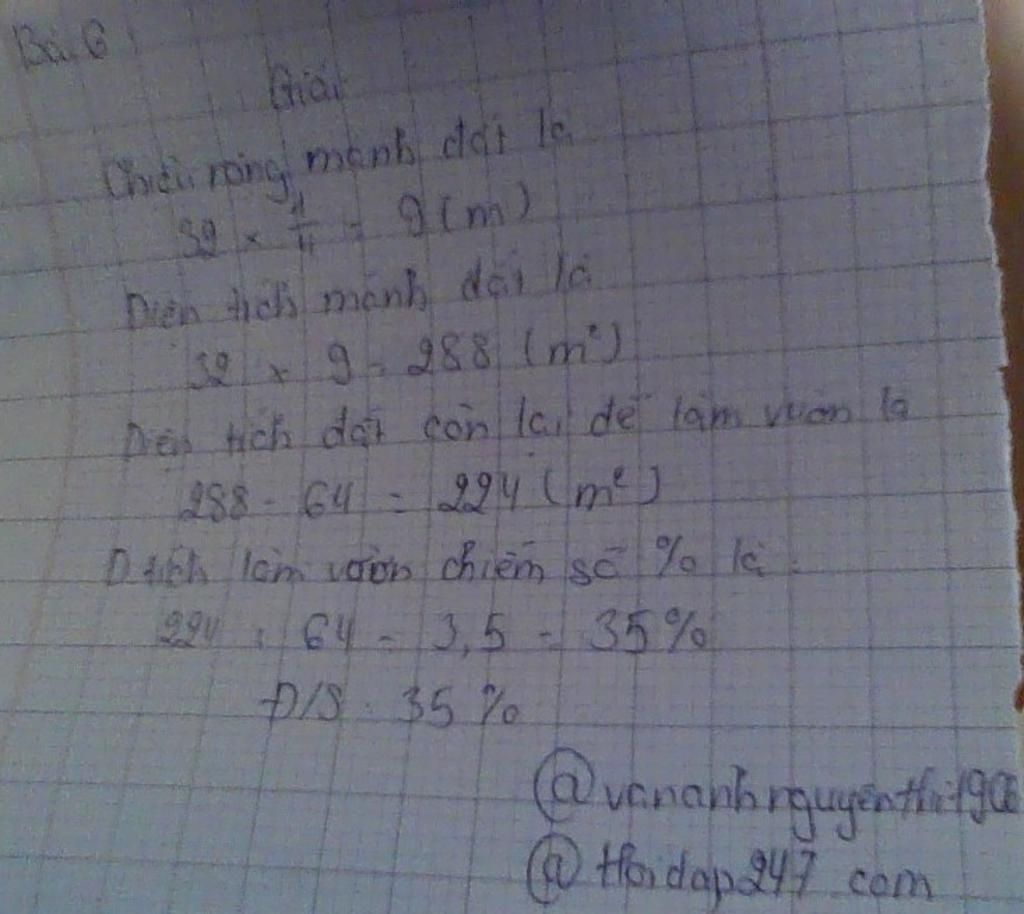 Bài 6:
Giải
Chiều rộng mảnh đất là
32 × 1/4 = 9 (m)
Diện tích mảnh đất là
32 × 9 = 288 (m²)
Diện tích đất còn lại để làm vườn là
288 - 64 = 224 (m²)
D tích làm vườn chiếm số % là:
224 : 64 = 3,5 = 35%
Đ/S: 35%
@vananhnguyenthi
@Hoidap247 com